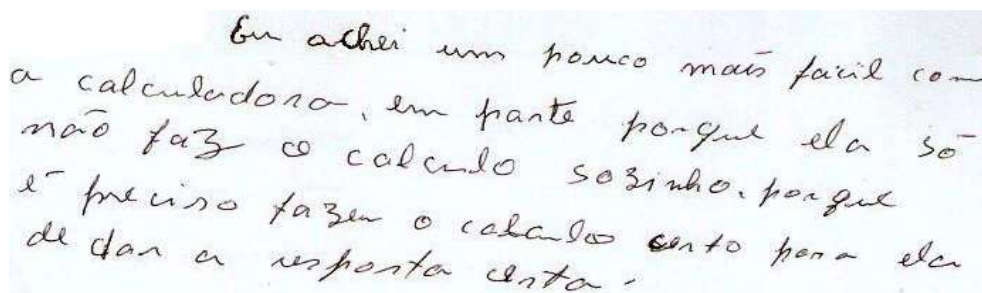 Eu achei um pouco mais facil com
a calculadora, em parte porque ela só
não faz o calculo sozinho, porque
é preciso fazer o calculo certo para ela
de dar a resposta certa.